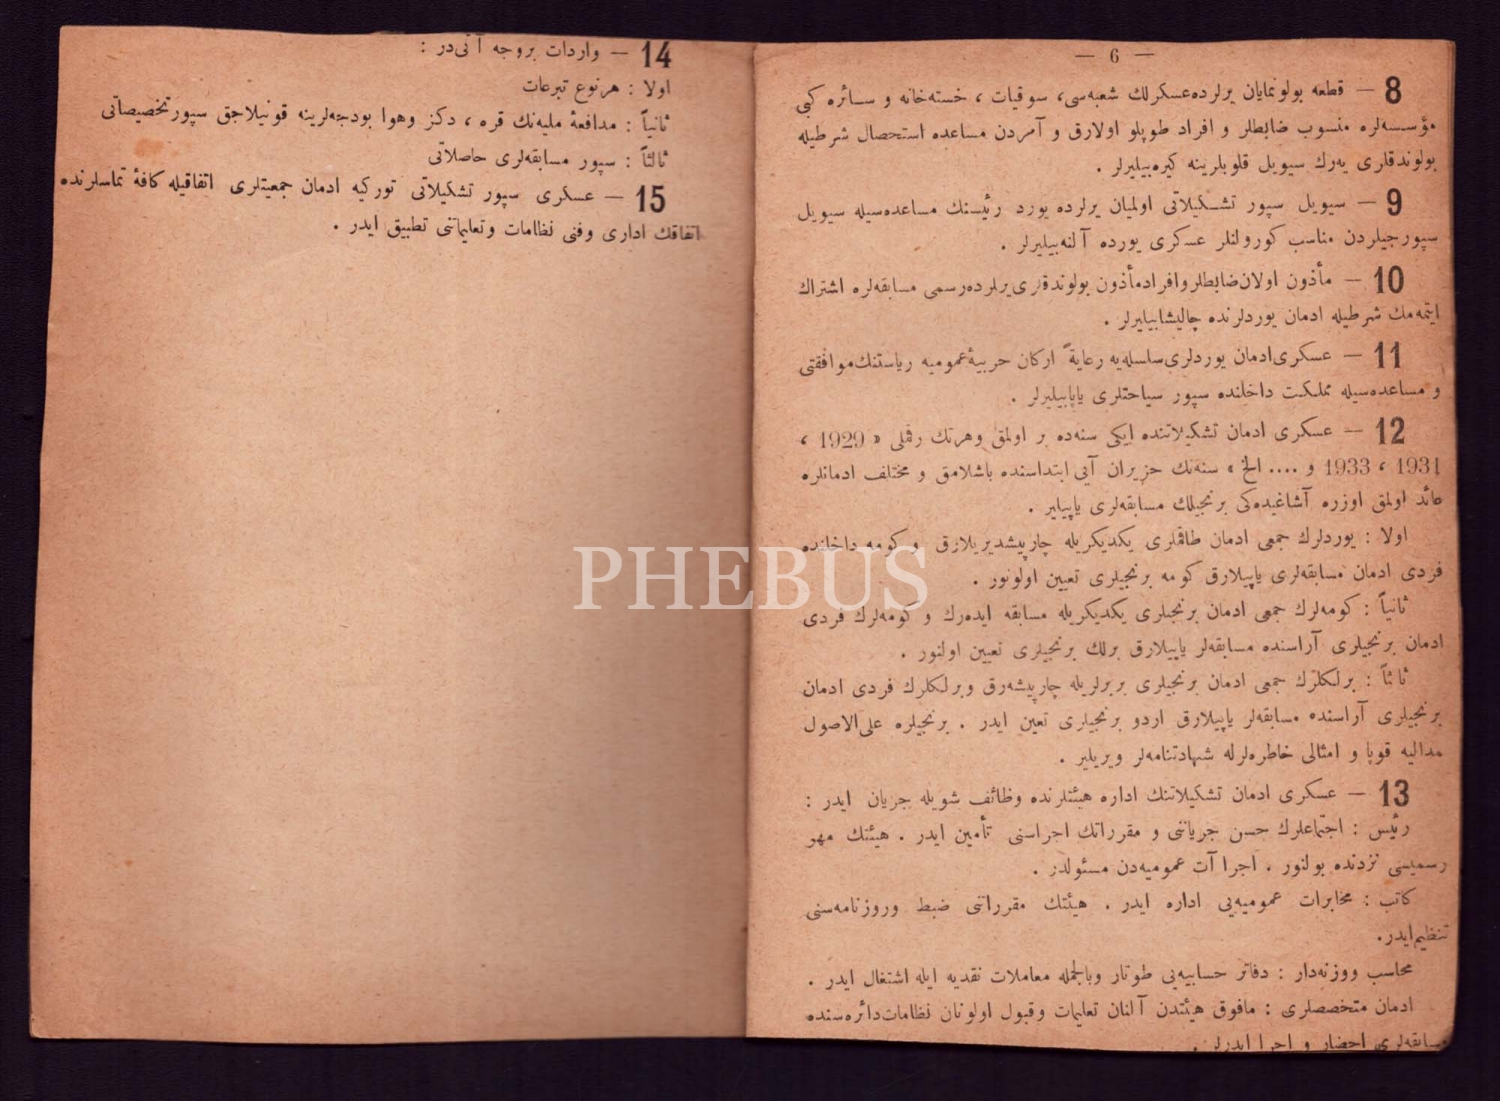 — 6 —
8 — قطعه بولونمايان يرلرده عسكرلك شعبه‌سى، سوقيات ، خسته‌خانه و سـائره كبى
مؤسسه‌لره منسوب ضابطلر و افراد طوپلو اولارق و آمردن مساعده استحصال شرطيله
بولوندقلرى يه‌رك سيويل قلوبلرينه كيره‌بيليرلر .
9 — سيويل سپور تشـكيلاتى اولميان يرلرده يورد رئيسنك مساعده‌سيله سيويل
سپورجيلردن مناسب كورولنلر عسكرى يورده آلنه‌بيليرلر .
10 — مأذون اولان ضابطلر وافراد مأذون بولوندقلرى يرلرده رسمى مسابقه‌لره اشتراك
ايتمه‌مك شرطيله ادمان يوردلرنده چاليشابيليرلر .
11 — عسكرى ادمان يوردلرى سلسله‌يه رعايةً اركان حربيهٔ عموميه رياستنك موافقتى
و مساعده‌سيله مملكت داخلنده سپور سياحتلرى ياپابيليرلر .
12 — عسكرى ادمان تشكيلاتنده ايكى سنه‌ده بر اولمق وهرتك رقملى « 1929 ،
1931 ، 1933 و .... الخ » سنه‌نك حزيران آيى ابتداسنده باشلامق و مختلف ادمانلره
عائد اولمق اوزره آشاغيده‌كى برنجيلك مسابقه‌لرى ياپيلير .
اولا : يوردلرك جمعى ادمان طاقملرى يكديكريله چارپيشديريلارق و كومه داخلنده
فردى ادمان مسابقه‌لرى ياپيلارق كومه برنجيلرى تعيين اولونور .
ثانياً : كومه‌لرك جمعى ادمان برنجيلرى يكديكريله مسابقه ايده‌رك و كومه‌لرك فردى
ادمان برنجيلرى آراسنده مسابقه‌لر ياپيلارق برلك برنجيلرى تعيين اولنور .
ثالثاً : برلكلرك جمعى ادمان برنجيلرى بربرلريله چارپيشه‌رق وبرلكلرك فردى ادمان
برنجيلرى آراسنده مسابقه‌لر ياپيلارق اردو برنجيلرى تعين ايدر . برنجيلره على‌الاصول
مداليه قوپا و امثالى خاطره‌لرله شهادتنامه‌لر ويريلير .
13 — عسكرى ادمان تشكيلاتنك اداره هيئتلرنده وظائف شويله جريان ايدر :
رئيس : اجتماعلرك حسن جرياننى و مقرراتك اجراسنى تأمين ايدر . هيئتك مهو
رسميسى نزدنده بولنور . اجراآت عموميه‌دن مسئولدر .
كاتب : مخابرات عموميه‌يى اداره ايدر . هيئتك مقرراتنى ضبط وروزنامه‌سنى
تنظيم ايدر.
محاسب ووزنه‌دار : دفاتر حسابيه‌يى طوتار وبالجمله معاملات نقديه ايله اشتغال ايدر .
ادمان متخصصلرى : مافوق هيئتدن آلنان تعليمات وقبول اولونان نظامات دائره‌سنده
مسابقه‌لرى احضار و اجرا ايدرلر .
14 — واردات بروجه آتى‌در :
اولا : هرنوع تبرعات
ثانياً : مدافعهٔ مليه‌نك قره ، دكز وهوا بودجه‌لرينه قونيلاجق سپور تخصيصاتى
ثالثاً : سپور مسابقه‌لرى حاصلاتى
15 — عسكرى سپور تشكيلاتى توركيه ادمان جمعيتلرى اتفاقيله كافهٔ تماسلرنده
اتفاقك ادارى وفنى نظامات وتعليماتنى تطبيق ايدر .
PHEBUS